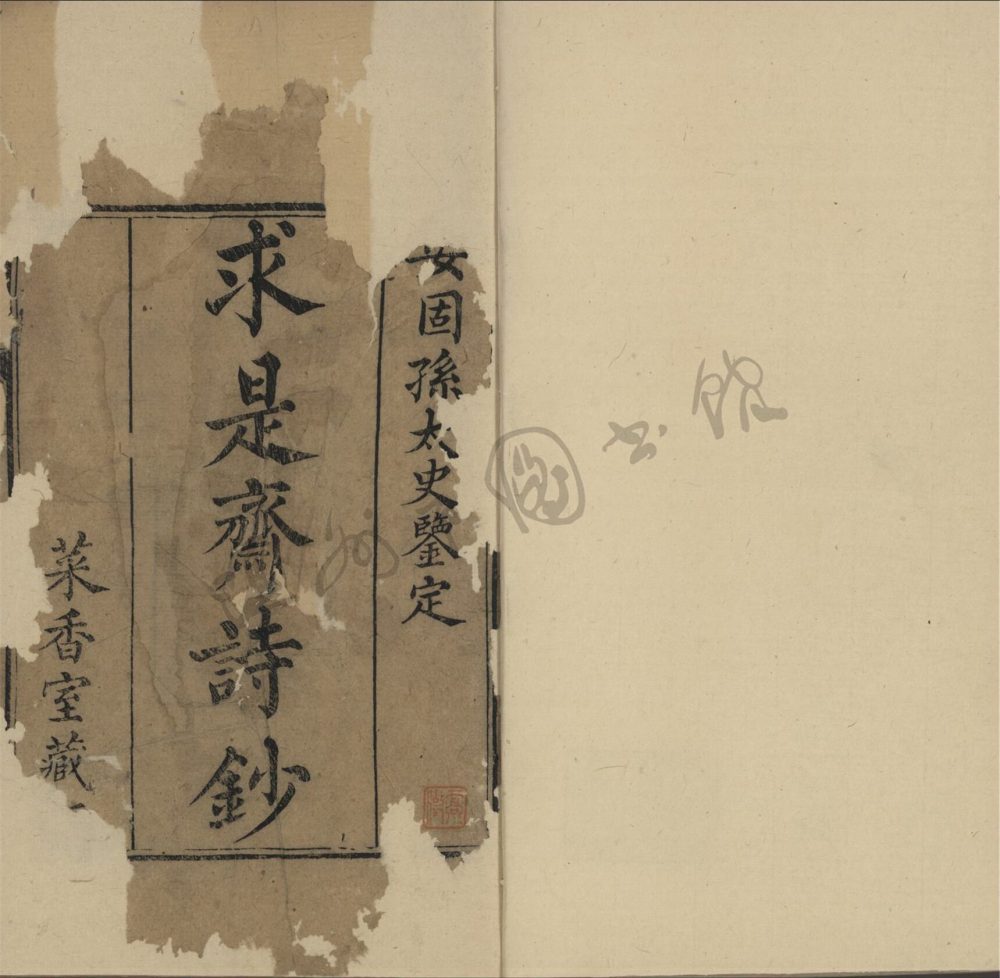 安固孫太史鑒定
求是齋詩鈔
菜香室藏